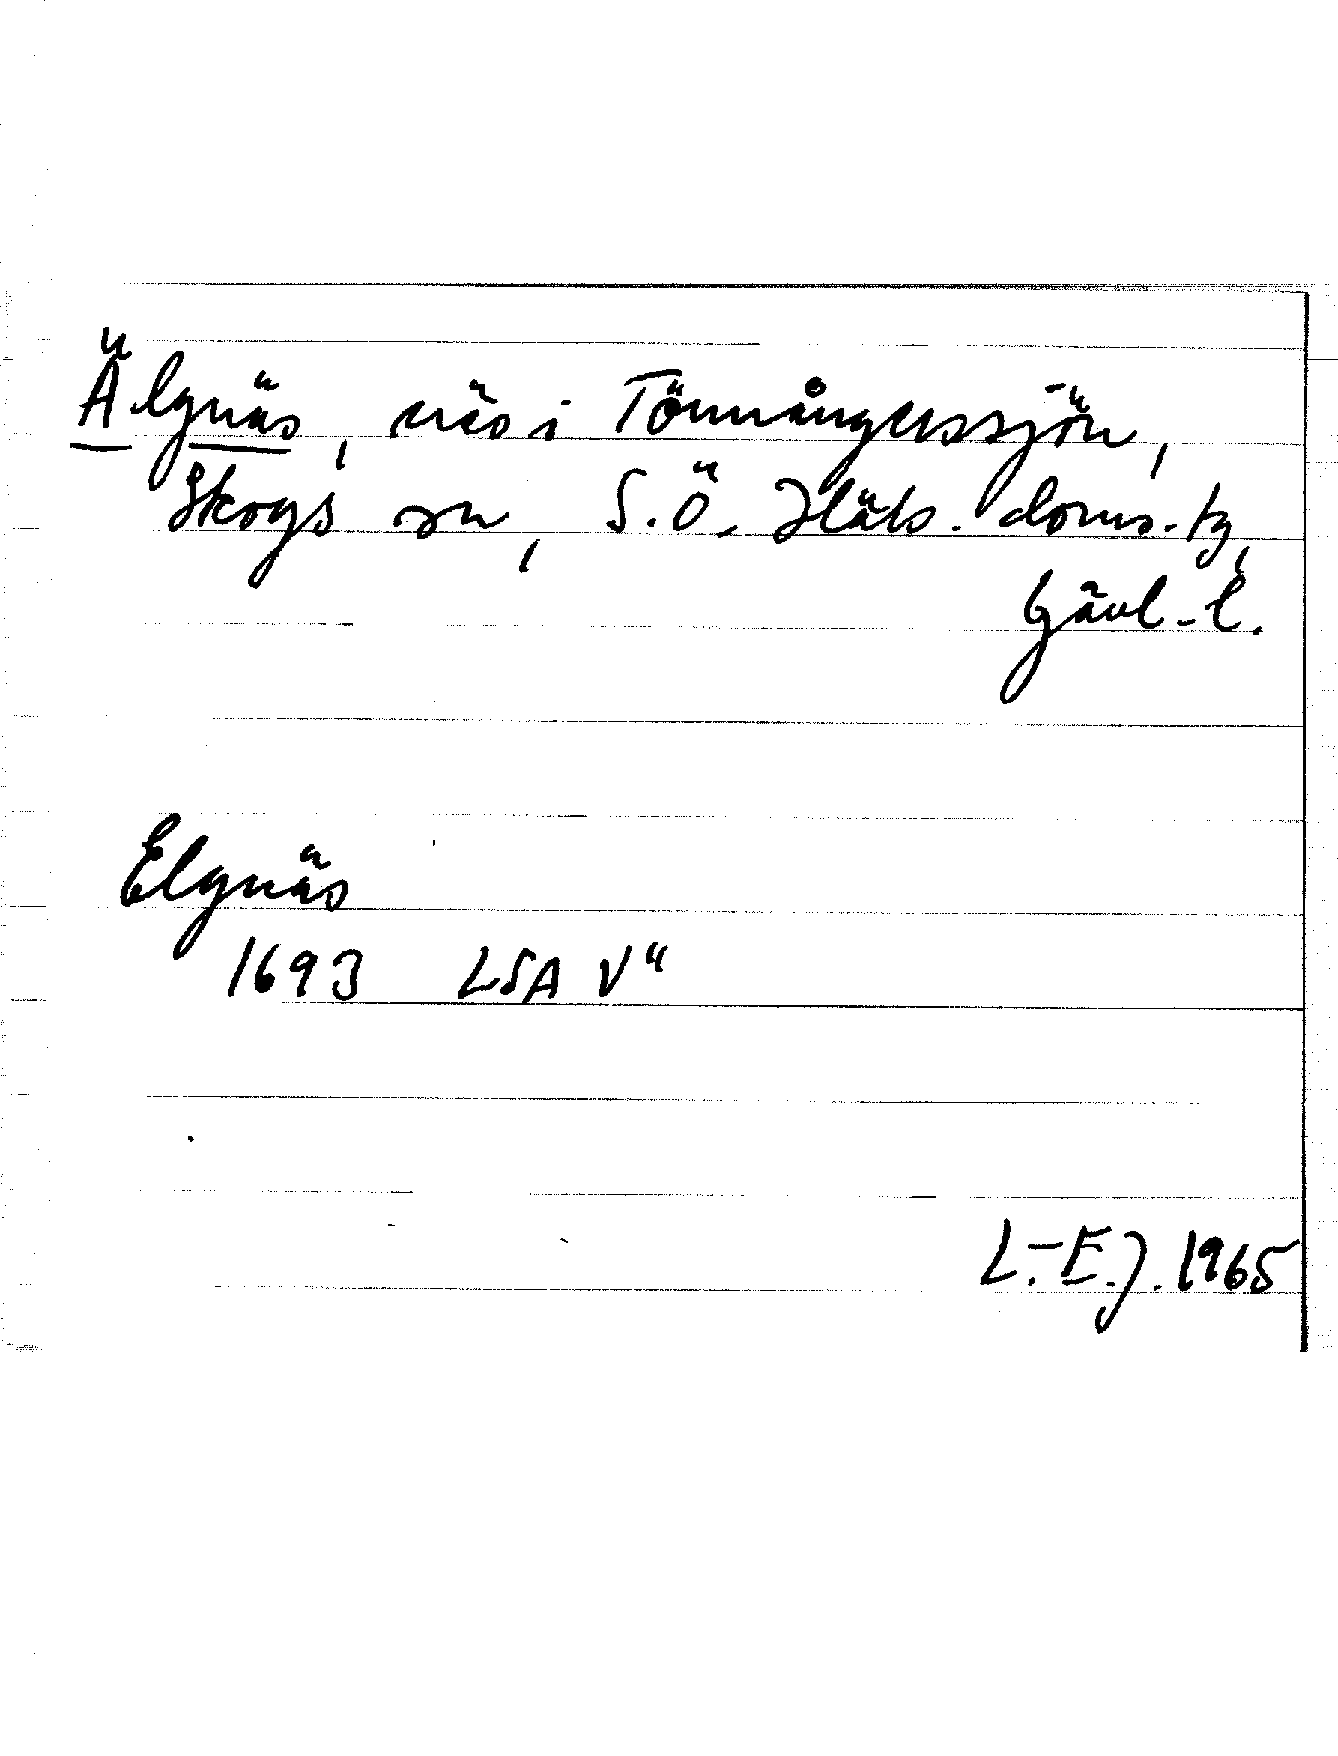 Älgnäs, näs i Tönnångerssjön,
Skogs sn, S.Ö. Häls. doms.-tg,
Gävl-l.
Elgnäs
1693 LSA V"
L.-E.J. 1965